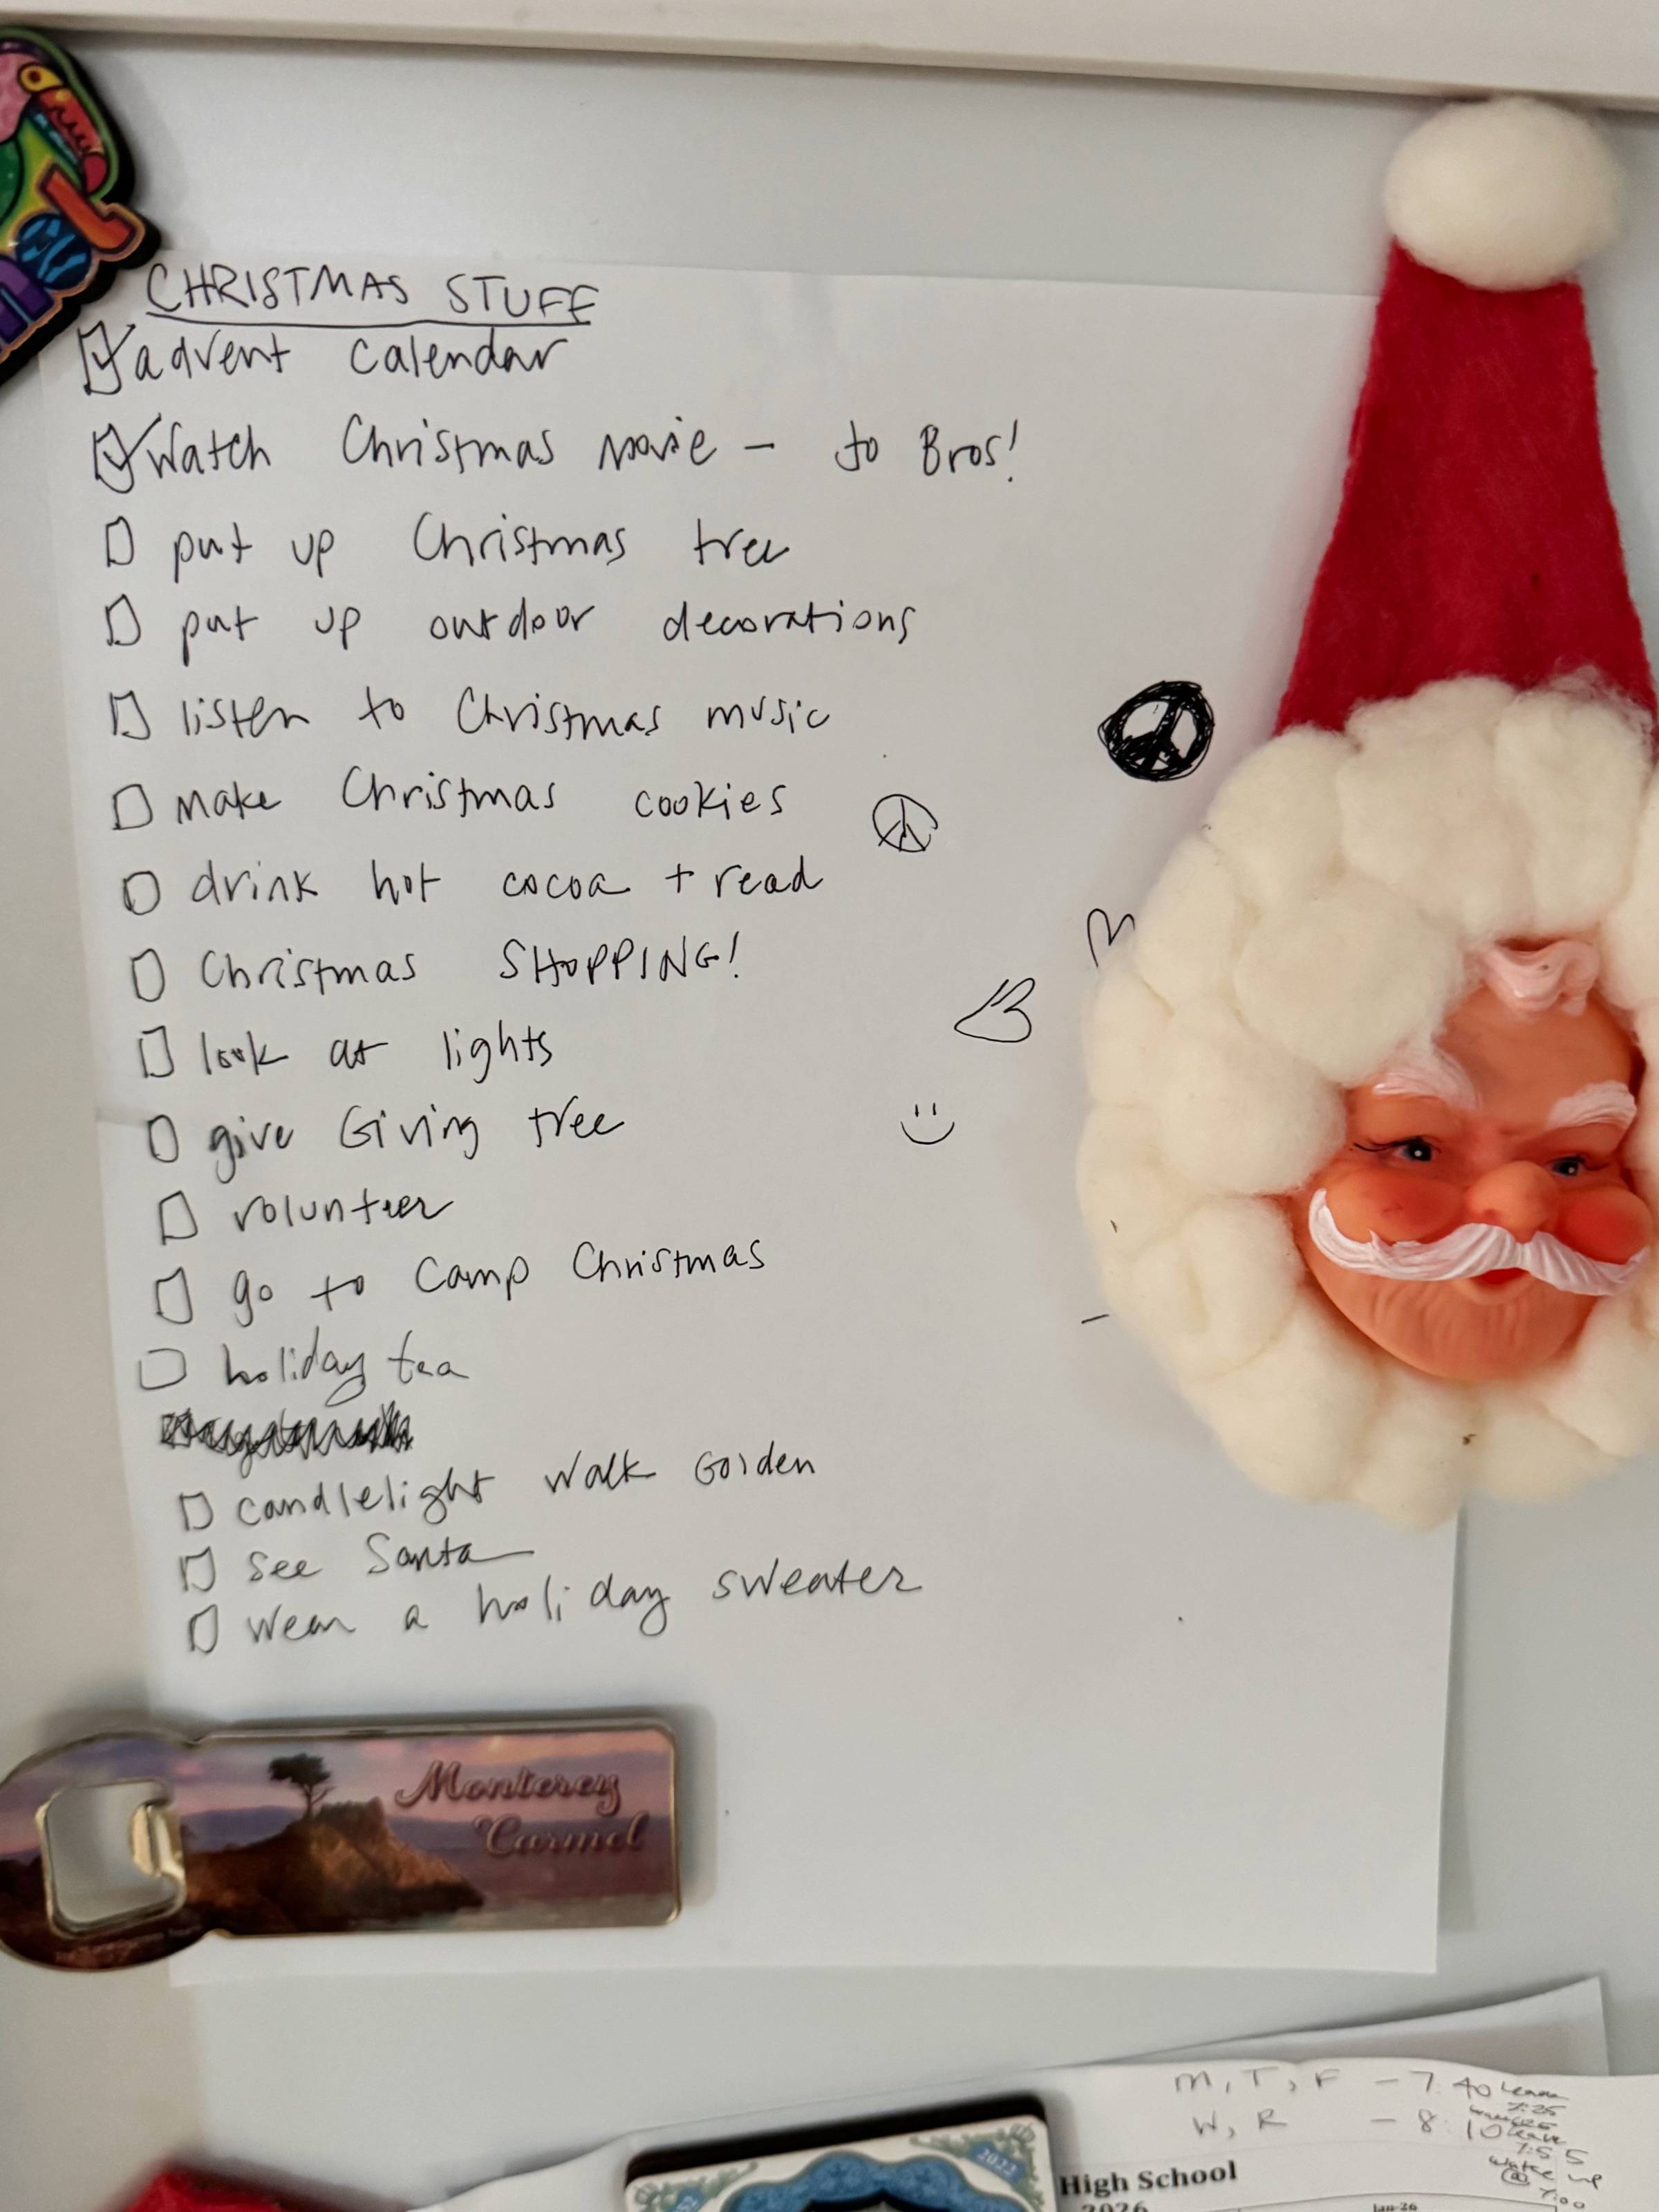 CHRISTMAS STUFF
advent calendar
Watch Christmas movie - Jo Bros!
put up Christmas tree
put up outdoor decorations
listen to Christmas music
make Christmas cookies
drink hot cocoa + read
Christmas SHOPPING!
look at lights
give Giving tree
volunteer
go to Camp Christmas
holiday tea
candlelight walk Golden
see Santa
wear a holiday sweater
Monterey
Carmel
M, T, F - 7:40 leave
7:25
W, R - 8:10 leave
7:55
wake up
@ 7:00
2022
High School
2026
Jan-26